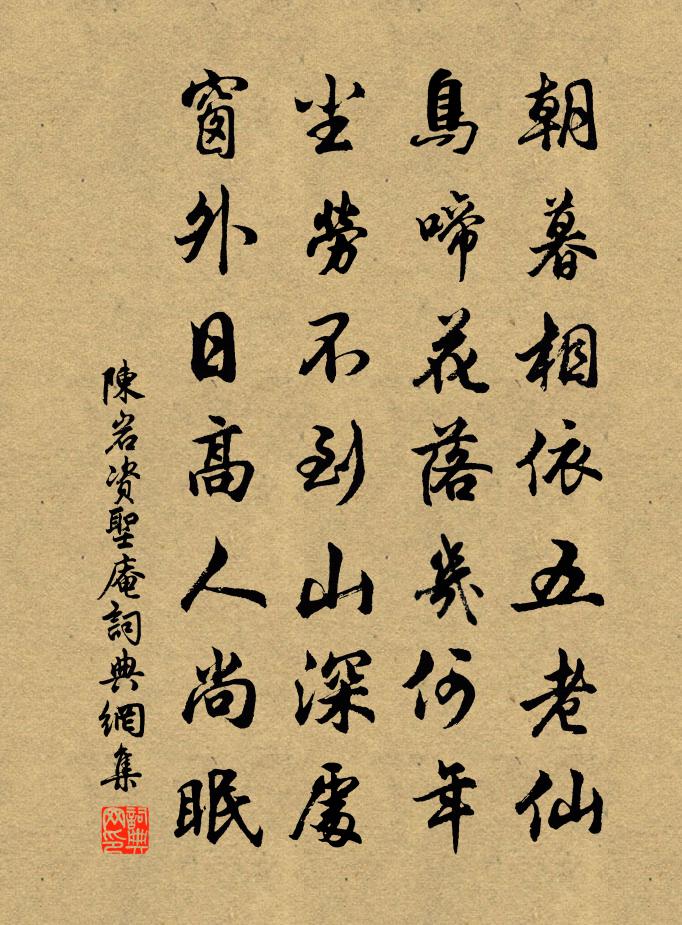 朝暮相依五老仙
鳥啼花落幾何年
塵勞不到山深處
窗外日高人尚眠
陳岩資聖庵詞典網集
詞典網印